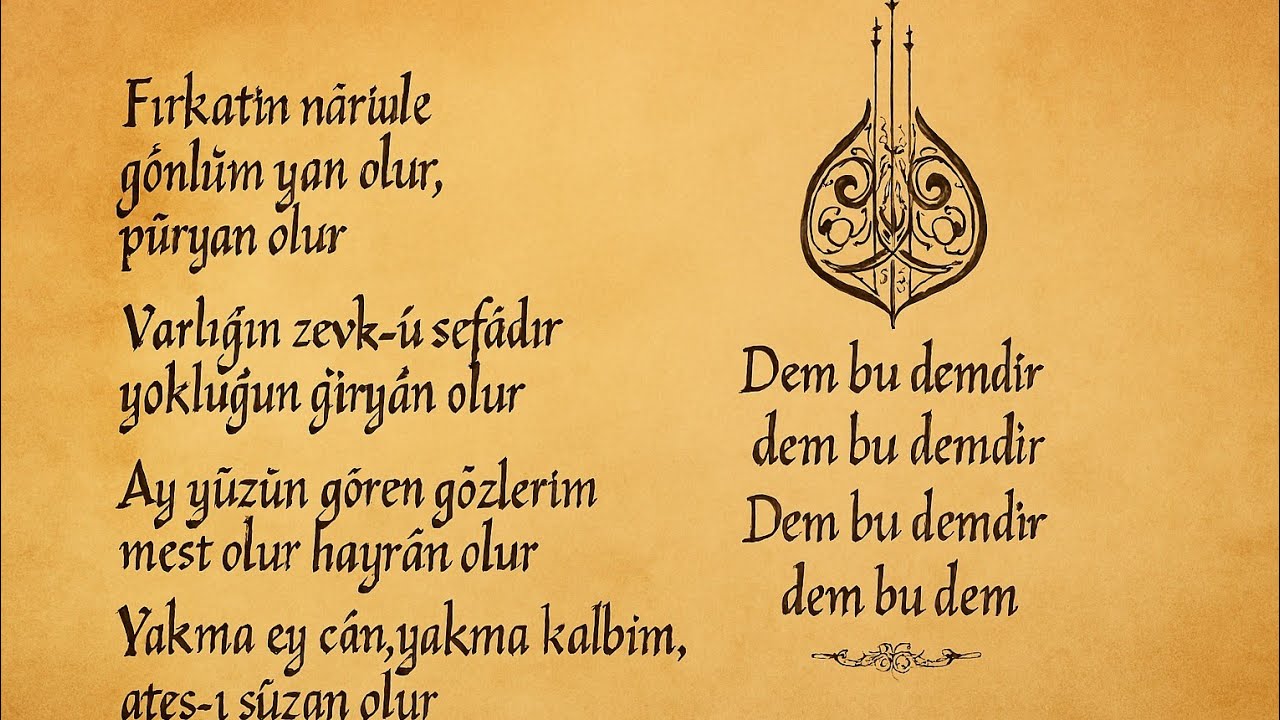 Fırkatin nâriule
gőnlŭm yan olur,
pūryan olur
Varlığın zevk-ú sefâdır
yokluğun ġiryân olur
Ay yūzŭn gőren gōzlerim
mest olur hayrân olur
Yakma ey cán,yakma kalbim,
ates-ı sūzan olur
Dem bu demdir
dem bu demdir
Dem bu demdir
dem bu dem